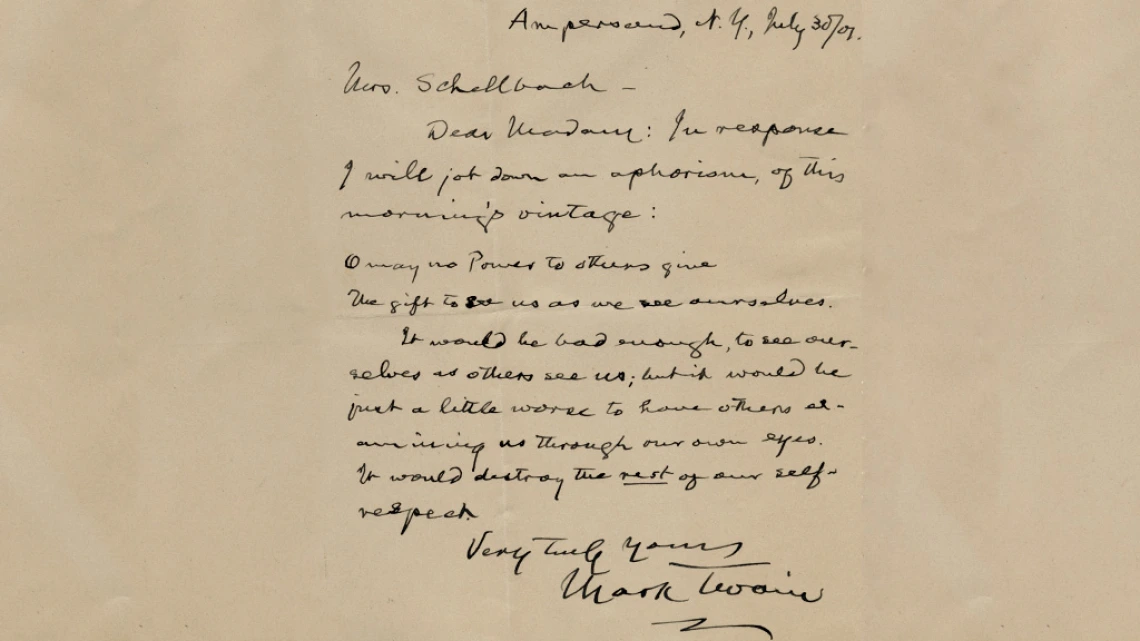 Ampersand, N. Y., July 30/01.
Mrs. Schellbach –
Dear Madam: In response
I will jot down an aphorism, of this
morning's vintage:
O may no Power to others give
The gift to see us as we see ourselves.
It would be bad enough, to see our-
selves as others see us; but it would be
just a little worse to have others ex-
amining us through our own eyes.
It would destroy the rest of our self-
respect.
Very truly yours
Mark Twain